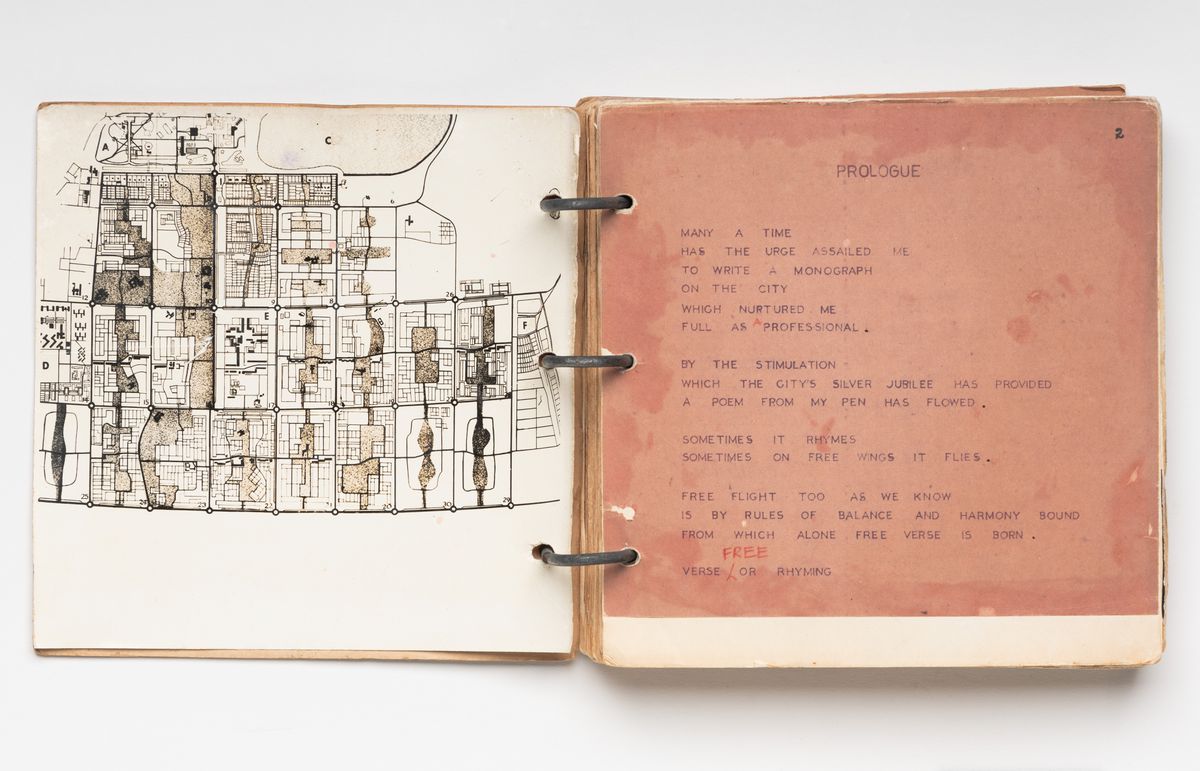 A
C
E
D
F
2
PROLOGUE
MANY A TIME
HAS THE URGE ASSAILED ME
TO WRITE A MONOGRAPH
ON THE CITY
WHICH NURTURED ME
FULL AS PROFESSIONAL.
BY THE STIMULATION
WHICH THE CITY'S SILVER JUBILEE HAS PROVIDED
A POEM FROM MY PEN HAS FLOWED.
SOMETIMES IT RHYMES
SOMETIMES ON FREE WINGS IT FLIES.
FREE FLIGHT TOO AS WE KNOW
IS BY RULES OF BALANCE AND HARMONY BOUND
FROM WHICH ALONE FREE VERSE IS BORN.
FREE
VERSE OR RHYMING